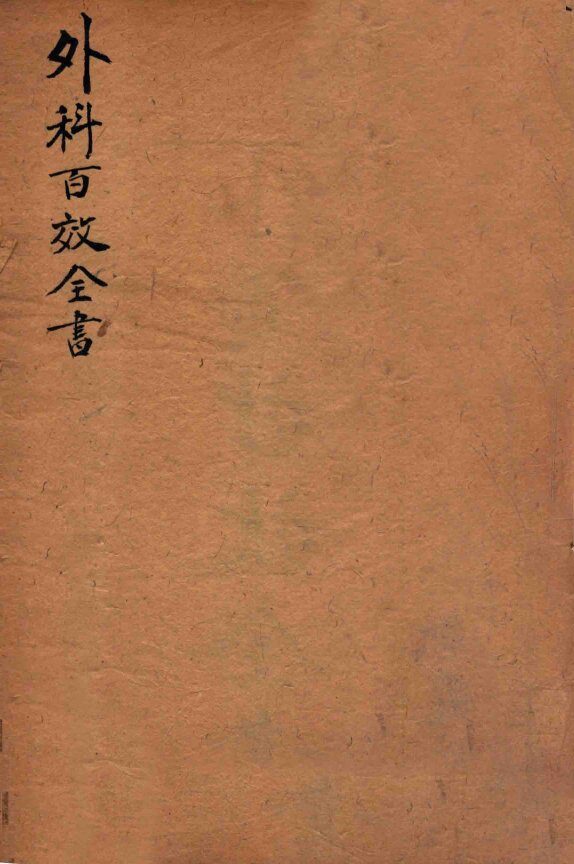 外科百效全書